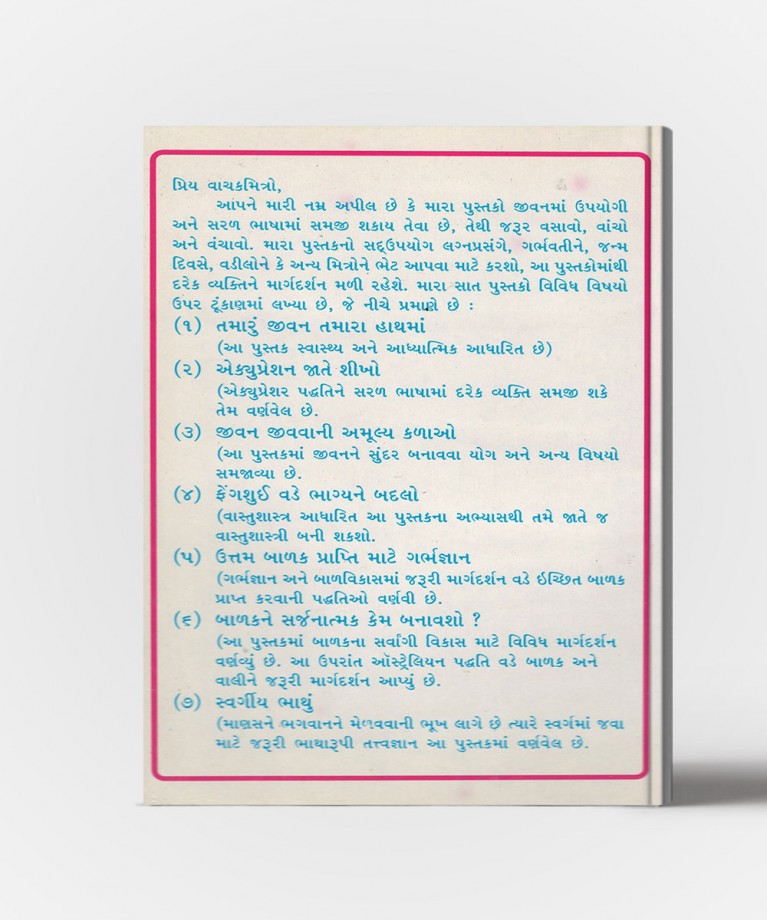 પ્રિય વાચકમિત્રો,
આપને મારી નમ્ર અપીલ છે કે મારા પુસ્તકો જીવનમાં ઉપયોગી
અને સરળ ભાષામાં સમજી શકાય તેવા છે, તેથી જરૂર વસાવો, વાંચો
અને વંચાવો. મારા પુસ્તકનો સદ્ઉપયોગ લગ્નપ્રસંગે, ગર્ભવતીને, જન્મ
દિવસે, વડીલોને કે અન્ય મિત્રોને ભેટ આપવા માટે કરશો, આ પુસ્તકોમાંથી
દરેક વ્યક્તિને માર્ગદર્શન મળી રહેશે. મારા સાત પુસ્તકો વિવિધ વિષયો
ઉપર ટૂંકાણમાં લખ્યા છે, જે નીચે પ્રમાણે છે :
(૧) તમારું જીવન તમારા હાથમાં
(આ પુસ્તક સ્વાસ્થ્ય અને આધ્યાત્મિક આધારિત છે)
(૨) એક્યુપ્રેશન જાતે શીખો
(એક્યુપ્રેશર પદ્ધતિને સરળ ભાષામાં દરેક વ્યક્તિ સમજી શકે
તેમ વર્ણવેલ છે.
(૩) જીવન જીવવાની અમૂલ્ય કળાઓ
(આ પુસ્તકમાં જીવનને સુંદર બનાવવા યોગ અને અન્ય વિષયો
સમજાવ્યા છે.
(૪) ફેંગશુઈ વડે ભાગ્યને બદલો
(વાસ્તુશાસ્ત્ર આધારિત આ પુસ્તકના અભ્યાસથી તમે જાતે જ
વાસ્તુશાસ્ત્રી બની શકશો.
(૫) ઉત્તમ બાળક પ્રાપ્તિ માટે ગર્ભજ્ઞાન
(ગર્ભજ્ઞાન અને બાળવિકાસમાં જરૂરી માર્ગદર્શન વડે ઇચ્છિત બાળક
પ્રાપ્ત કરવાની પદ્ધતિઓ વર્ણવી છે.
(૬) બાળકને સર્જનાત્મક કેમ બનાવશો ?
(આ પુસ્તકમાં બાળકના સર્વાંગી વિકાસ માટે વિવિધ માર્ગદર્શન
વર્ણવ્યું છે. આ ઉપરાંત ઑસ્ટ્રેલિયન પદ્ધતિ વડે બાળક અને
વાલીને જરૂરી માર્ગદર્શન આપ્યું છે.
(૭) સ્વર્ગીય ભાથું
(માણસને ભગવાનને મેળવવાની ભૂખ લાગે છે ત્યારે સ્વર્ગમાં જવા
માટે જરૂરી ભાથારૂપી તત્ત્વજ્ઞાન આ પુસ્તકમાં વર્ણવેલ છે.